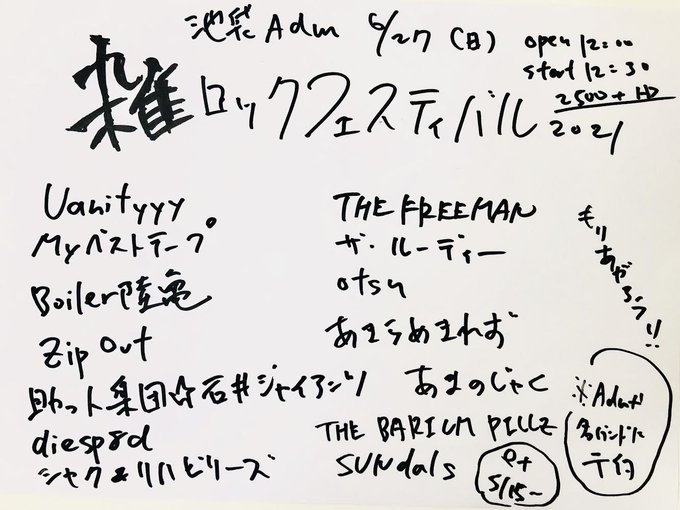 池袋 Adm 6/27(日)
open 12:00
start 12:30
2500+1D
雑ロックフェスティバル 2021
Vanityyy
Myベストテープ。
Boiler陸亀
Zip Out
助っ人集団☆石井ジャイアンツ
diesp8d
シャク&リハビリーズ
THE FREEMAN
ザ・ルーディー
otsu
あまのじゃく
THE BARIUM PILLZ
SUNdals
もりあがろう!!
※Admや
各バンドに
テイク
5/15~